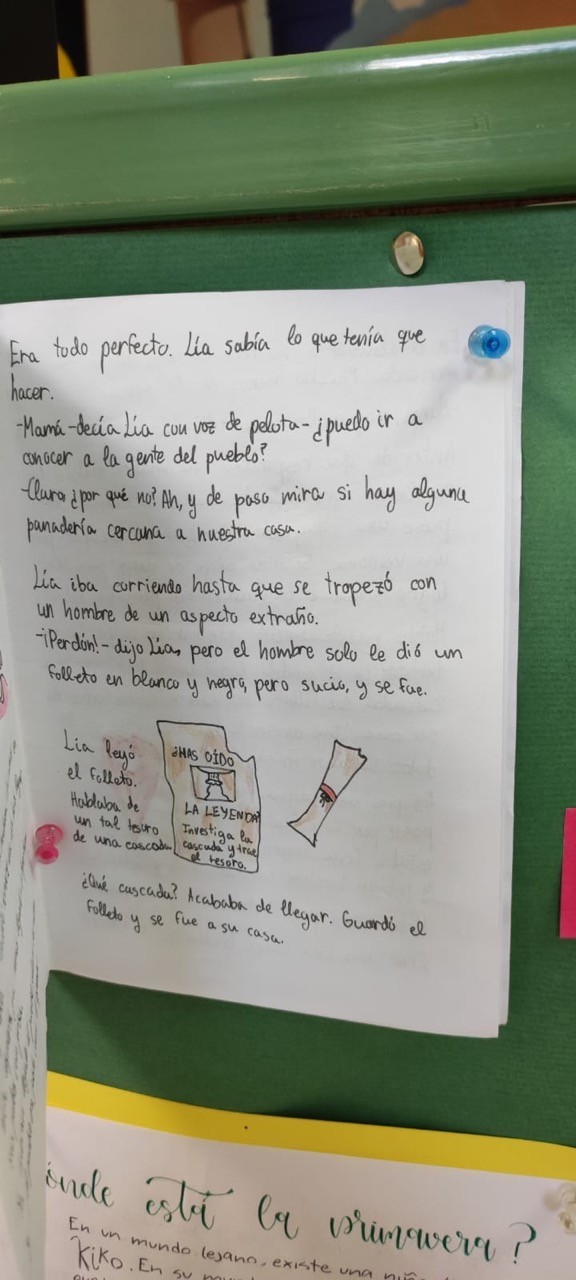 Era todo perfecto. Lía sabía lo que tenía que
hacer.
-Mamá-decía Lía con voz de pelota-¿puedo ir a
conocer a la gente del pueblo?
-Claro ¿por qué no? Ah, y de paso mira si hay alguna
panadería cercana a nuestra casa.
Lía iba corriendo hasta que se tropezó con
un hombre de un aspecto extraño.
-¡Perdón!-dijo Lía, pero el hombre solo le dió un
folleto en blanco y negro, pero sucio, y se fue.
Lía leyó
el folleto.
Hablaba de
un tal tesoro
de una cascada
¿HAS OÍDO
LA LEYENDA?
Investiga la
cascada y trae
el tesoro.
¿Qué cascada? Acababa de llegar. Guardó el
folleto y se fue a su casa.
ónde está la primavera?
En un mundo lejano, existe una
Kiko. En su